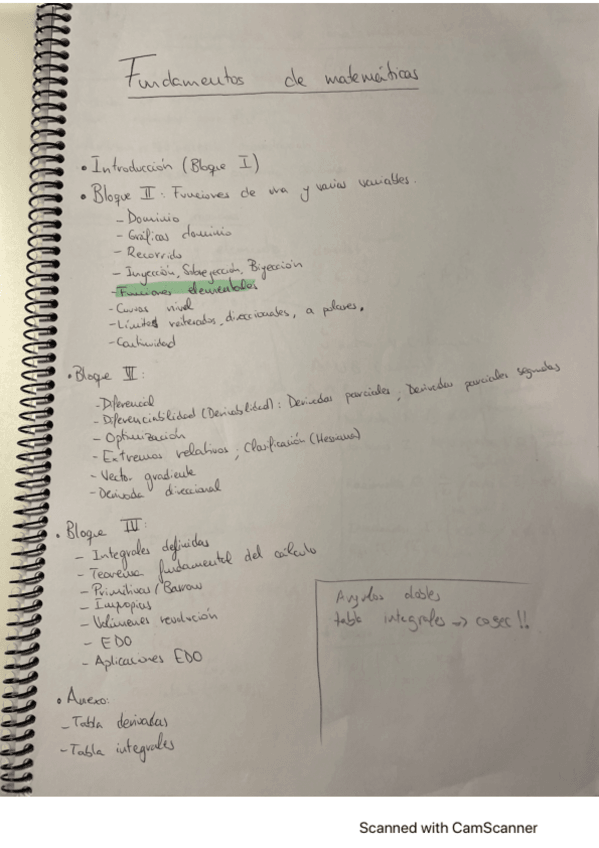 Fundamentos de matemáticas
• Introducción (Bloque I)
• Bloque II: Funciones de una y varias variables.
- Dominio
- Gráficas dominio
- Recorrido
- Inyección, Sobreyección, Biyección
- Funciones elementales
- Curvas nivel
- Límites reiterados, direccionales, a polares.
- Continuidad
• Bloque III:
- Diferencial
- Diferenciabilidad (Derivabilidad): Derivadas parciales, Derivadas parciales segundas
- Optimización
- Extremos relativos; Clasificación (Hessiana)
- Vector gradiente
- Derivada direccional
• Bloque IV:
- Integrales definidas
- Teorema fundamental del cálculo
- Primitivas / Barrow
- Impropias
- Volúmenes revolución
- EDO
- Aplicaciones EDO
Angulos dobles
tabla integrales → cosec !!
• Anexo:
- Tabla derivadas
- Tabla integrales
Scanned with CamScanner